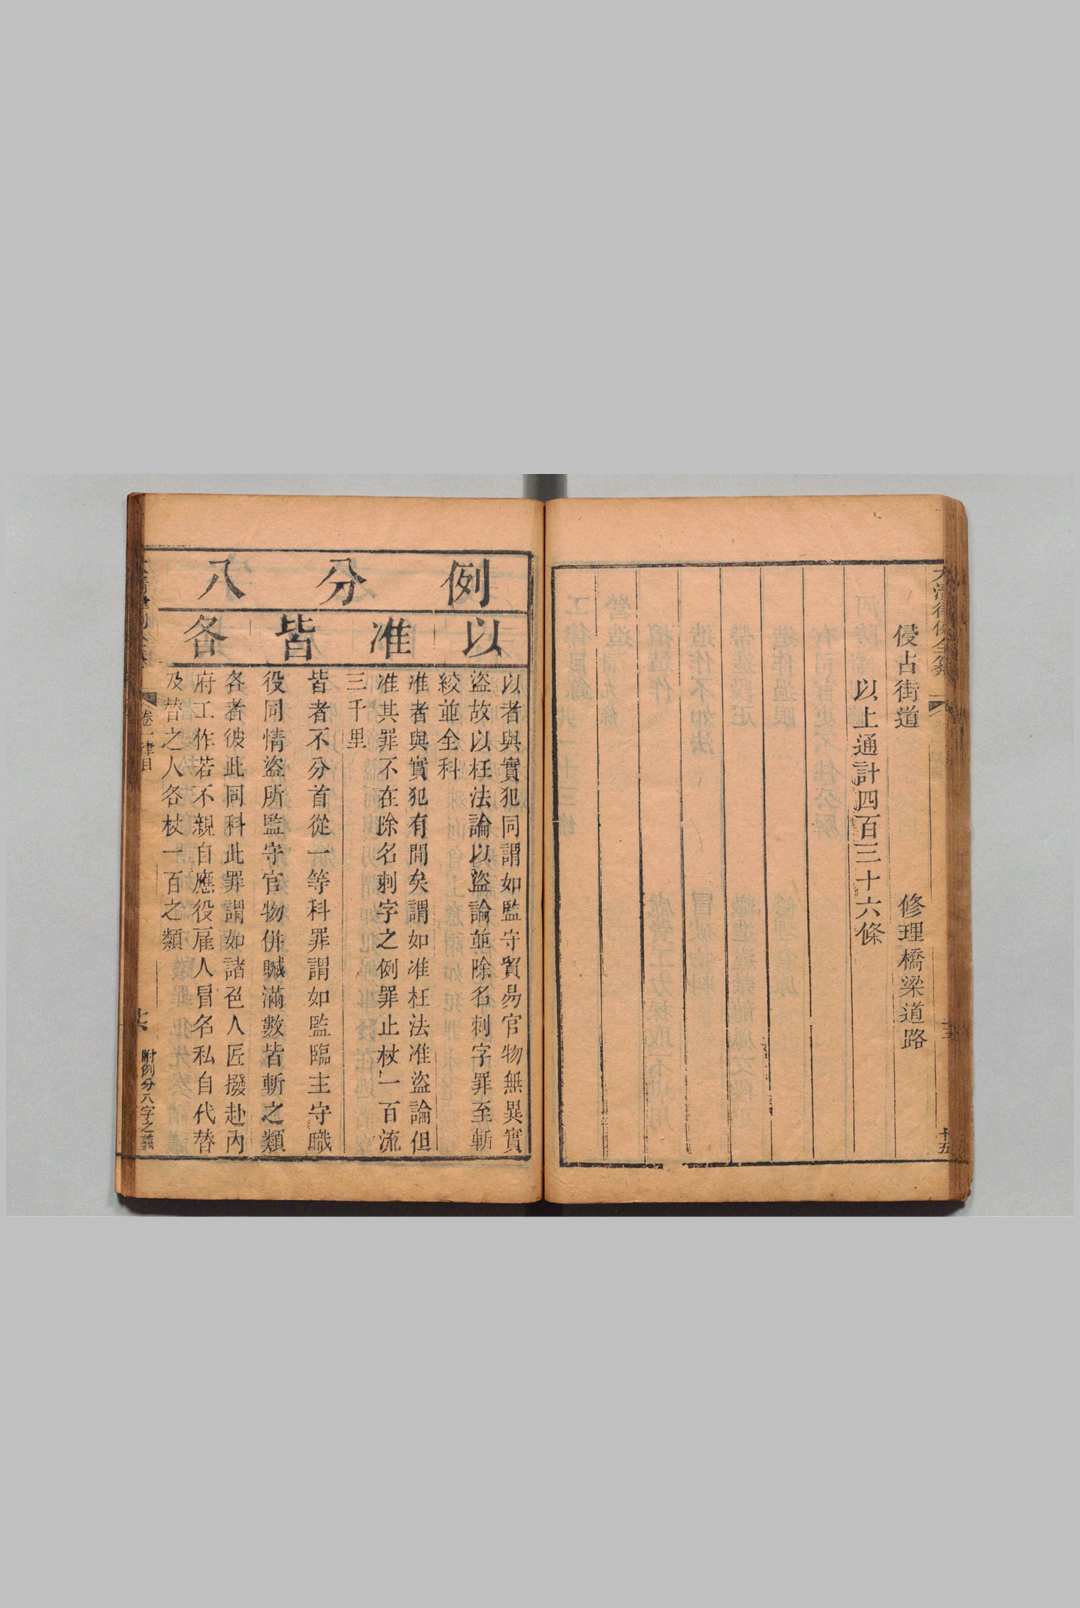 侵占街道
修理橋梁道路
以上通計四百三十六條
十五
例分八
以准皆各
以者與實犯同謂如監守貿易官物無異實
盜故以枉法論以盜論並除名刺字罪至斬
絞並全科
准者與實犯有間矣謂如准枉法准盜論但
准其罪不在除名刺字之例罪止杖一百流
三千里
皆者不分首從一等科罪謂如監臨主守職
役同情盜所監守官物併贓滿數皆斬之類
各者彼此同科此罪謂如諸色人匠撥赴內
府工作若不親自應役雇人冒名私自代替
及替之人各杖一百之類
卷一律目
附例分八字之義